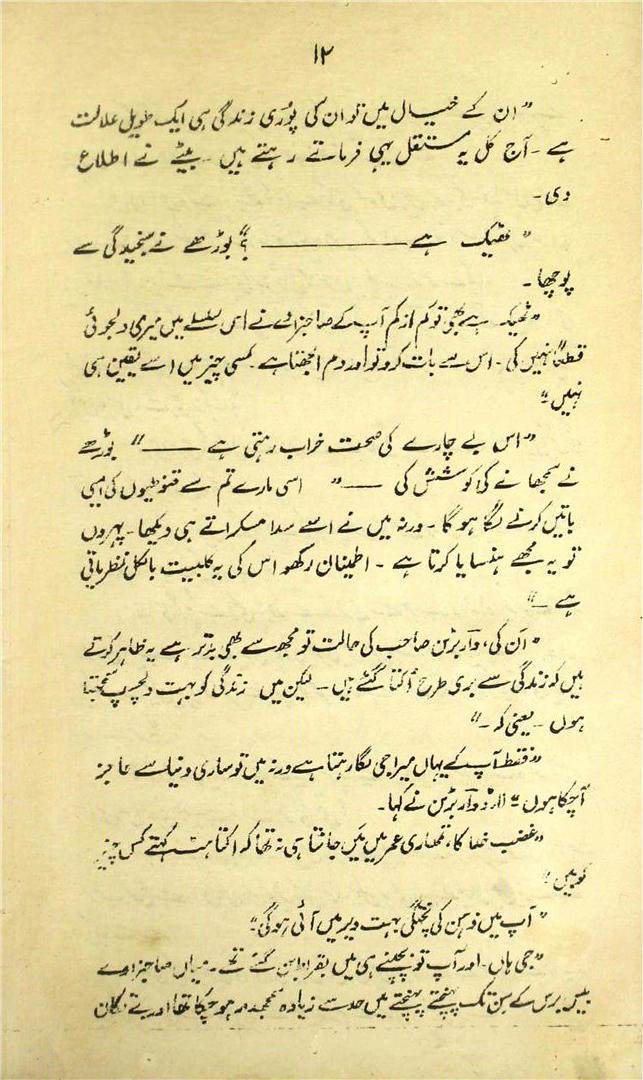 ۱۲
"ان کے خیال میں تو ان کی پوری زندگی ہی ایک طویل علالت
ہے - آج کل یہ مستقل یہی فرماتے رہتے ہیں - بیٹے نے اطلاع
دی -
" ٹھیک ہے ــــــــــــ ؟" بوڑھے نے سنجیدگی سے
پوچھا -
"ٹھیک ہے بھی تو کم از کم آپ کے صاحبزادے نے اس سلسلے میں میری دلجوئی
قطعاً نہیں کی - اس سے بات کرو تو اور دم الجھتا ہے - کسی چیز میں اسے یقین ہی
نہیں"
"اس بے چارے کی صحت خراب رہتی ہے ــــــ" بوڑھے
نے سمجھانے کی کوشش کی ــــ" اسی مارے تم سے قنوطیوں کی ایسی
باتیں کرنے لگا ہوگا - ورنہ میں نے اسے سدا مسکراتے ہی دیکھا - پہروں
تو یہ مجھے ہنسایا کرتا ہے - اطینان رکھو اس کی یہ کلبیت بالکل نظریاتی
ہے ــ"
"ان کی، دآر بزن صاحب کی حالت تو مجھ سے بھی بدتر ہے یہ ظاہر کرتے
ہیں کہ زندگی سے بری طرح اُکتا گئے ہیں - لیکن میں زندگی کو بہت دلچسپ سمجھتا
ہوں - یعنی کہ -"
"فقط آپ کے یہاں میرا جی لگا رہتا ہے ورنہ میں تو ساری دنیا سے عاجز
آ چکا ہوں" لارڈ دآر بزن نے کہا -
"غضب خدا کا، تمھاری عمر میں میں جانتا ہی نہ تھا کہ اکتاہٹ کہتے کس چیز
کو ہیں"
"آپ میں ذہن کی پختگی بہت دیر میں آئی ہوگی"
"جی ہاں - اور آپ تو بچپنے ہی میں بقراط بن گئے تھے - میاں صاحبزادے
بیس برس کے سن تک پہنچتے پہنچتے میں حد سے زیادہ سمجھدار ہو چکا تھا اور بے تکان